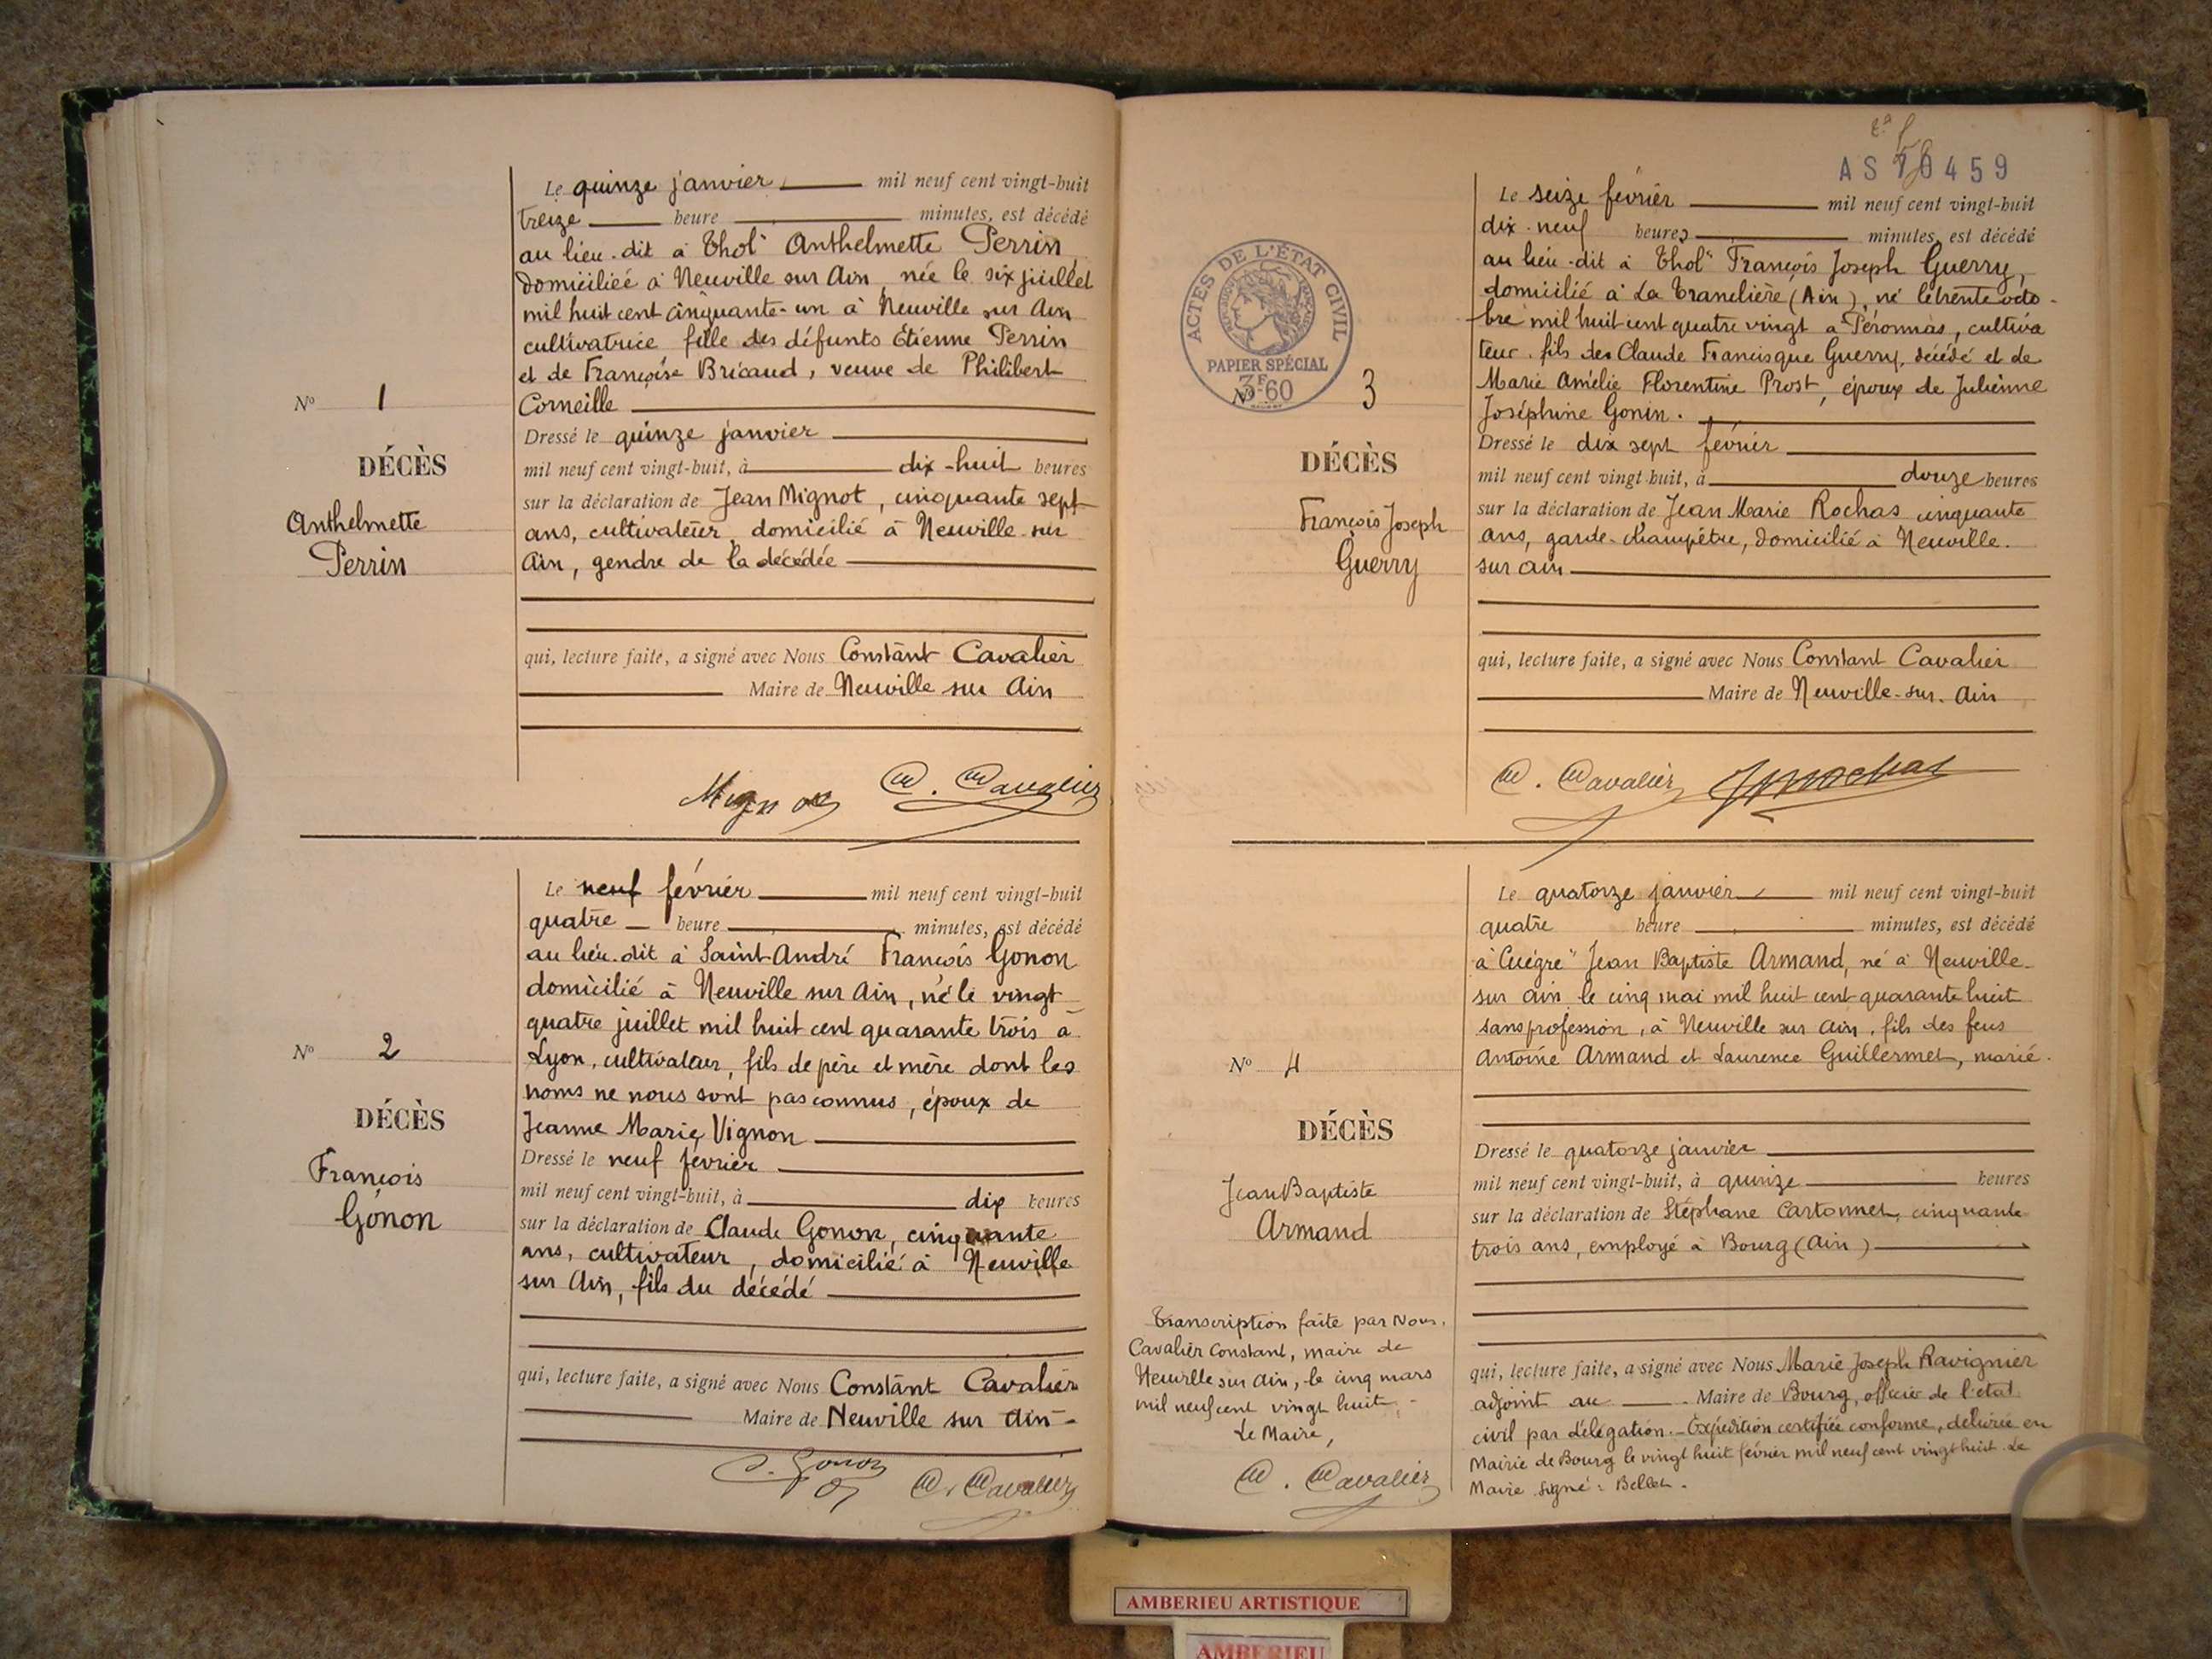 Le quinze janvier mil neuf cent vingt-huit
treize heure minutes, est décédé
au lieu-dit à Thol" Anthelmette Perrin,
domiciliée à Neuville sur Ain, née le six juillet
mil huit cent cinquante-un à Neuville sur Ain
cultivatrice fille des défunts Etienne Perrin
et de Françoise Bricaud, veuve de Philibert
Corneille
Dressé le quinze janvier
mil neuf cent vingt-huit, à dix-huit heures
sur la déclaration de Jean Mignot, cinquante sept
ans, cultivateur, domicilié à Neuville-sur
Ain, gendre de la décédée
qui, lecture faite, a signé avec Nous Constant Cavalier
Maire de Neuville sur Ain
Nº 1
DÉCÈS
Anthelmette
Perrin
Mignot C. Cavalier
Le neuf février mil neuf cent vingt-huit
quatre heure minutes, est décédé
au lieu-dit à Saint-André François Gonon
domicilié à Neuville sur Ain, né le vingt
quatre juillet mil huit cent quarante trois à
Lyon, cultivateur, fils de père et mère dont les
noms ne nous sont pas connus, époux de
Jeanne Marie Vignon
Dressé le neuf février
mil neuf cent vingt-huit, à dix heures
sur la déclaration de Claude Gonon, cinquante
ans, cultivateur, domicilié à Neuville
sur Ain, fils du décédé
qui, lecture faite, a signé avec Nous Constant Cavalier
Maire de Neuville sur Ain-
Nº 2
DÉCÈS
François
Gonon
C. Gonon C. Cavalier
AS 70459
Le seize février mil neuf cent vingt-huit
dix-neuf heures minutes, est décédé
au lieu-dit à Thol" François Joseph Guerry,
domicilié à La Tranclière (Ain), né le trente octo-
bre mil huit cent quatre vingt à Péronnas, cultiva
teur, fils des Claude Francisque Guerry, décédé et de
Marie Amélie Florentine Prost, époux de Julienne
Joséphine Gonin.
Dressé le dix sept février
mil neuf cent vingt-huit, à douze heures
sur la déclaration de Jean Marie Rochas cinquante
ans, garde-champêtre, domicilié à Neuville.
sur ain
qui, lecture faite, a signé avec Nous Constant Cavalier
Maire de Neuville-sur-Ain
ACTES DE L'ÉTAT CIVIL
RÉPUBLIQUE FRANÇAISE
PAPIER SPÉCIAL
3F60
Nº 3
DÉCÈS
François Joseph
Guerry
C. Cavalier JMRochas
Le quatorze janvier mil neuf cent vingt-huit
quatre heure minutes, est décédé
à Cuègre" Jean Baptiste Armand, né à Neuville-
sur ain le cinq mai mil huit cent quarante huit
sans profession, à Neuville sur Ain, fils des feus
Antoine Armand et Laurence Guillermet, marié.
Dressé le quatorze janvier
mil neuf cent vingt-huit, à quinze heures
sur la déclaration de Stéphane Cartonnet, cinquante
trois ans, employé à Bourg (Ain)
qui, lecture faite, a signé avec Nous Marie Joseph Ravignier
adjoint au Maire de Bourg, officier de l'état
civil par délégation.-Expédition certifiée conforme, délivrée en
Mairie de Bourg le vingt huit février mil neuf cent vingt huit. Le
Maire signé: Bellet.
Nº 4
DÉCÈS
Jean Baptiste
Armand
Transcription faite par Nous,
Cavalier Constant, maire de
Neuville sur Ain, le cinq mars
mil neuf cent vingt huit.-
Le Maire,
C. Cavalier
AMBERIEU ARTISTIQUE
AMBERIEU